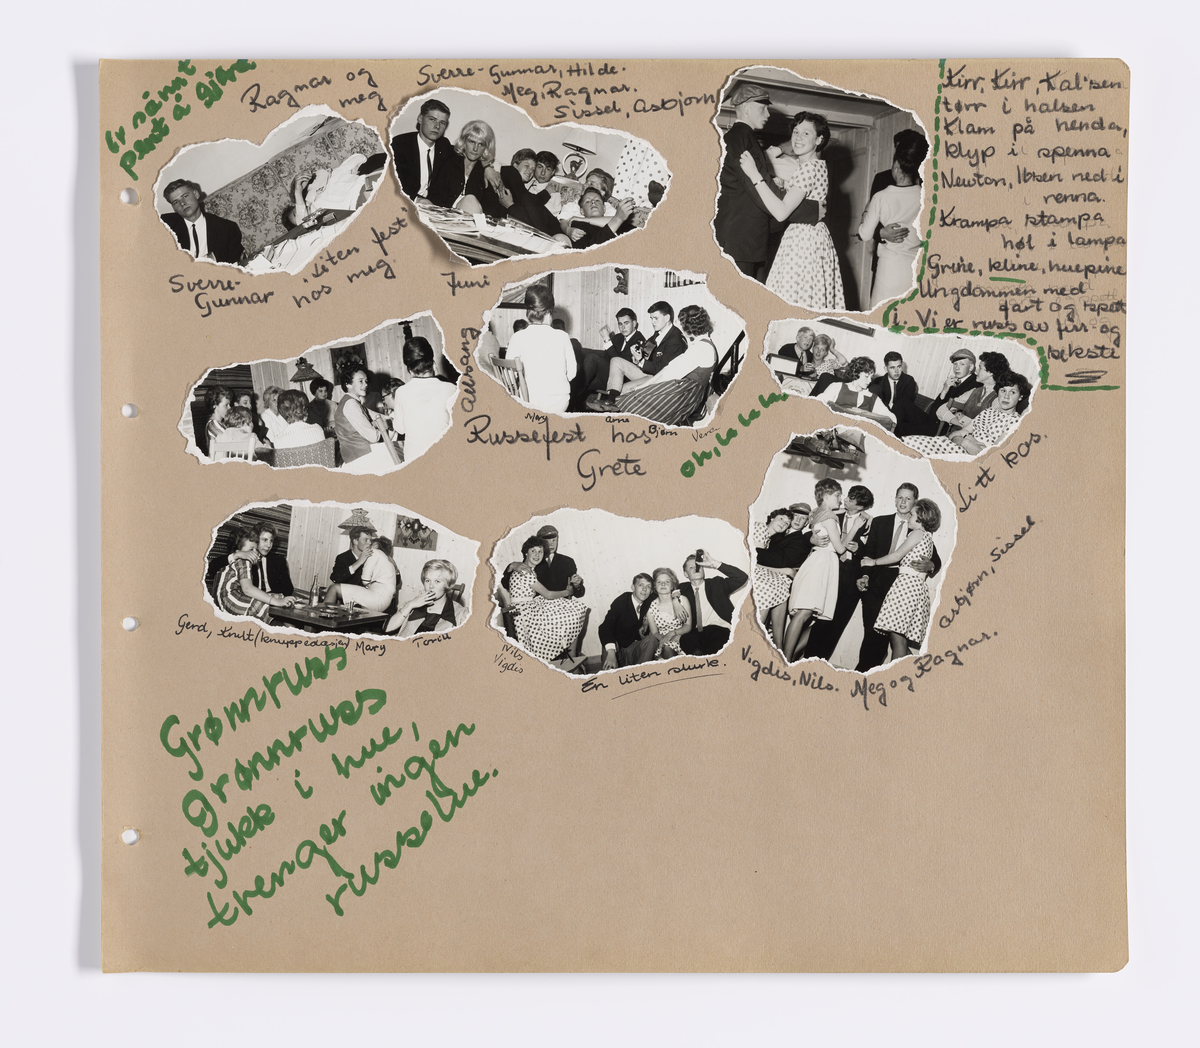 Er sånnt
pent å gjøre
Ragnar og
meg
Sverre-Gunnar, Hilde.
Meg, Ragnar.
Sissel, Asbjørn
Kirr, Kirr, Kalsen
tørr i halsen
Klam på henda,
klyp i spenna
Newton, Ibsen ned i
renna.
Krampa stampa
høl i lampa
Grine, kline, huepine
Ungdommen med
fart og spøtt
i. Vi er russ av fir- og
sekste
Sverre-
Gunnar
Liten fest
hos meg.
Juni
Allsang
Mary
Arne
Bjørn
Vera
Russefest hos
Grete
oh, la la la
Litt kos.
Gerd, Knut (knuppedasje) Mary
Toril
Nils
Vigdis
En liten slurk.
Vigdis, Nils.
Meg og Ragnar.
Asbjørn, Sissel
Grønnruss
grønnruss
tjukk i hue,
trenger ingen
russelue.